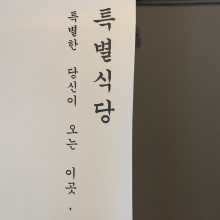 특별식당
특별한 당신이 오는 이곳,